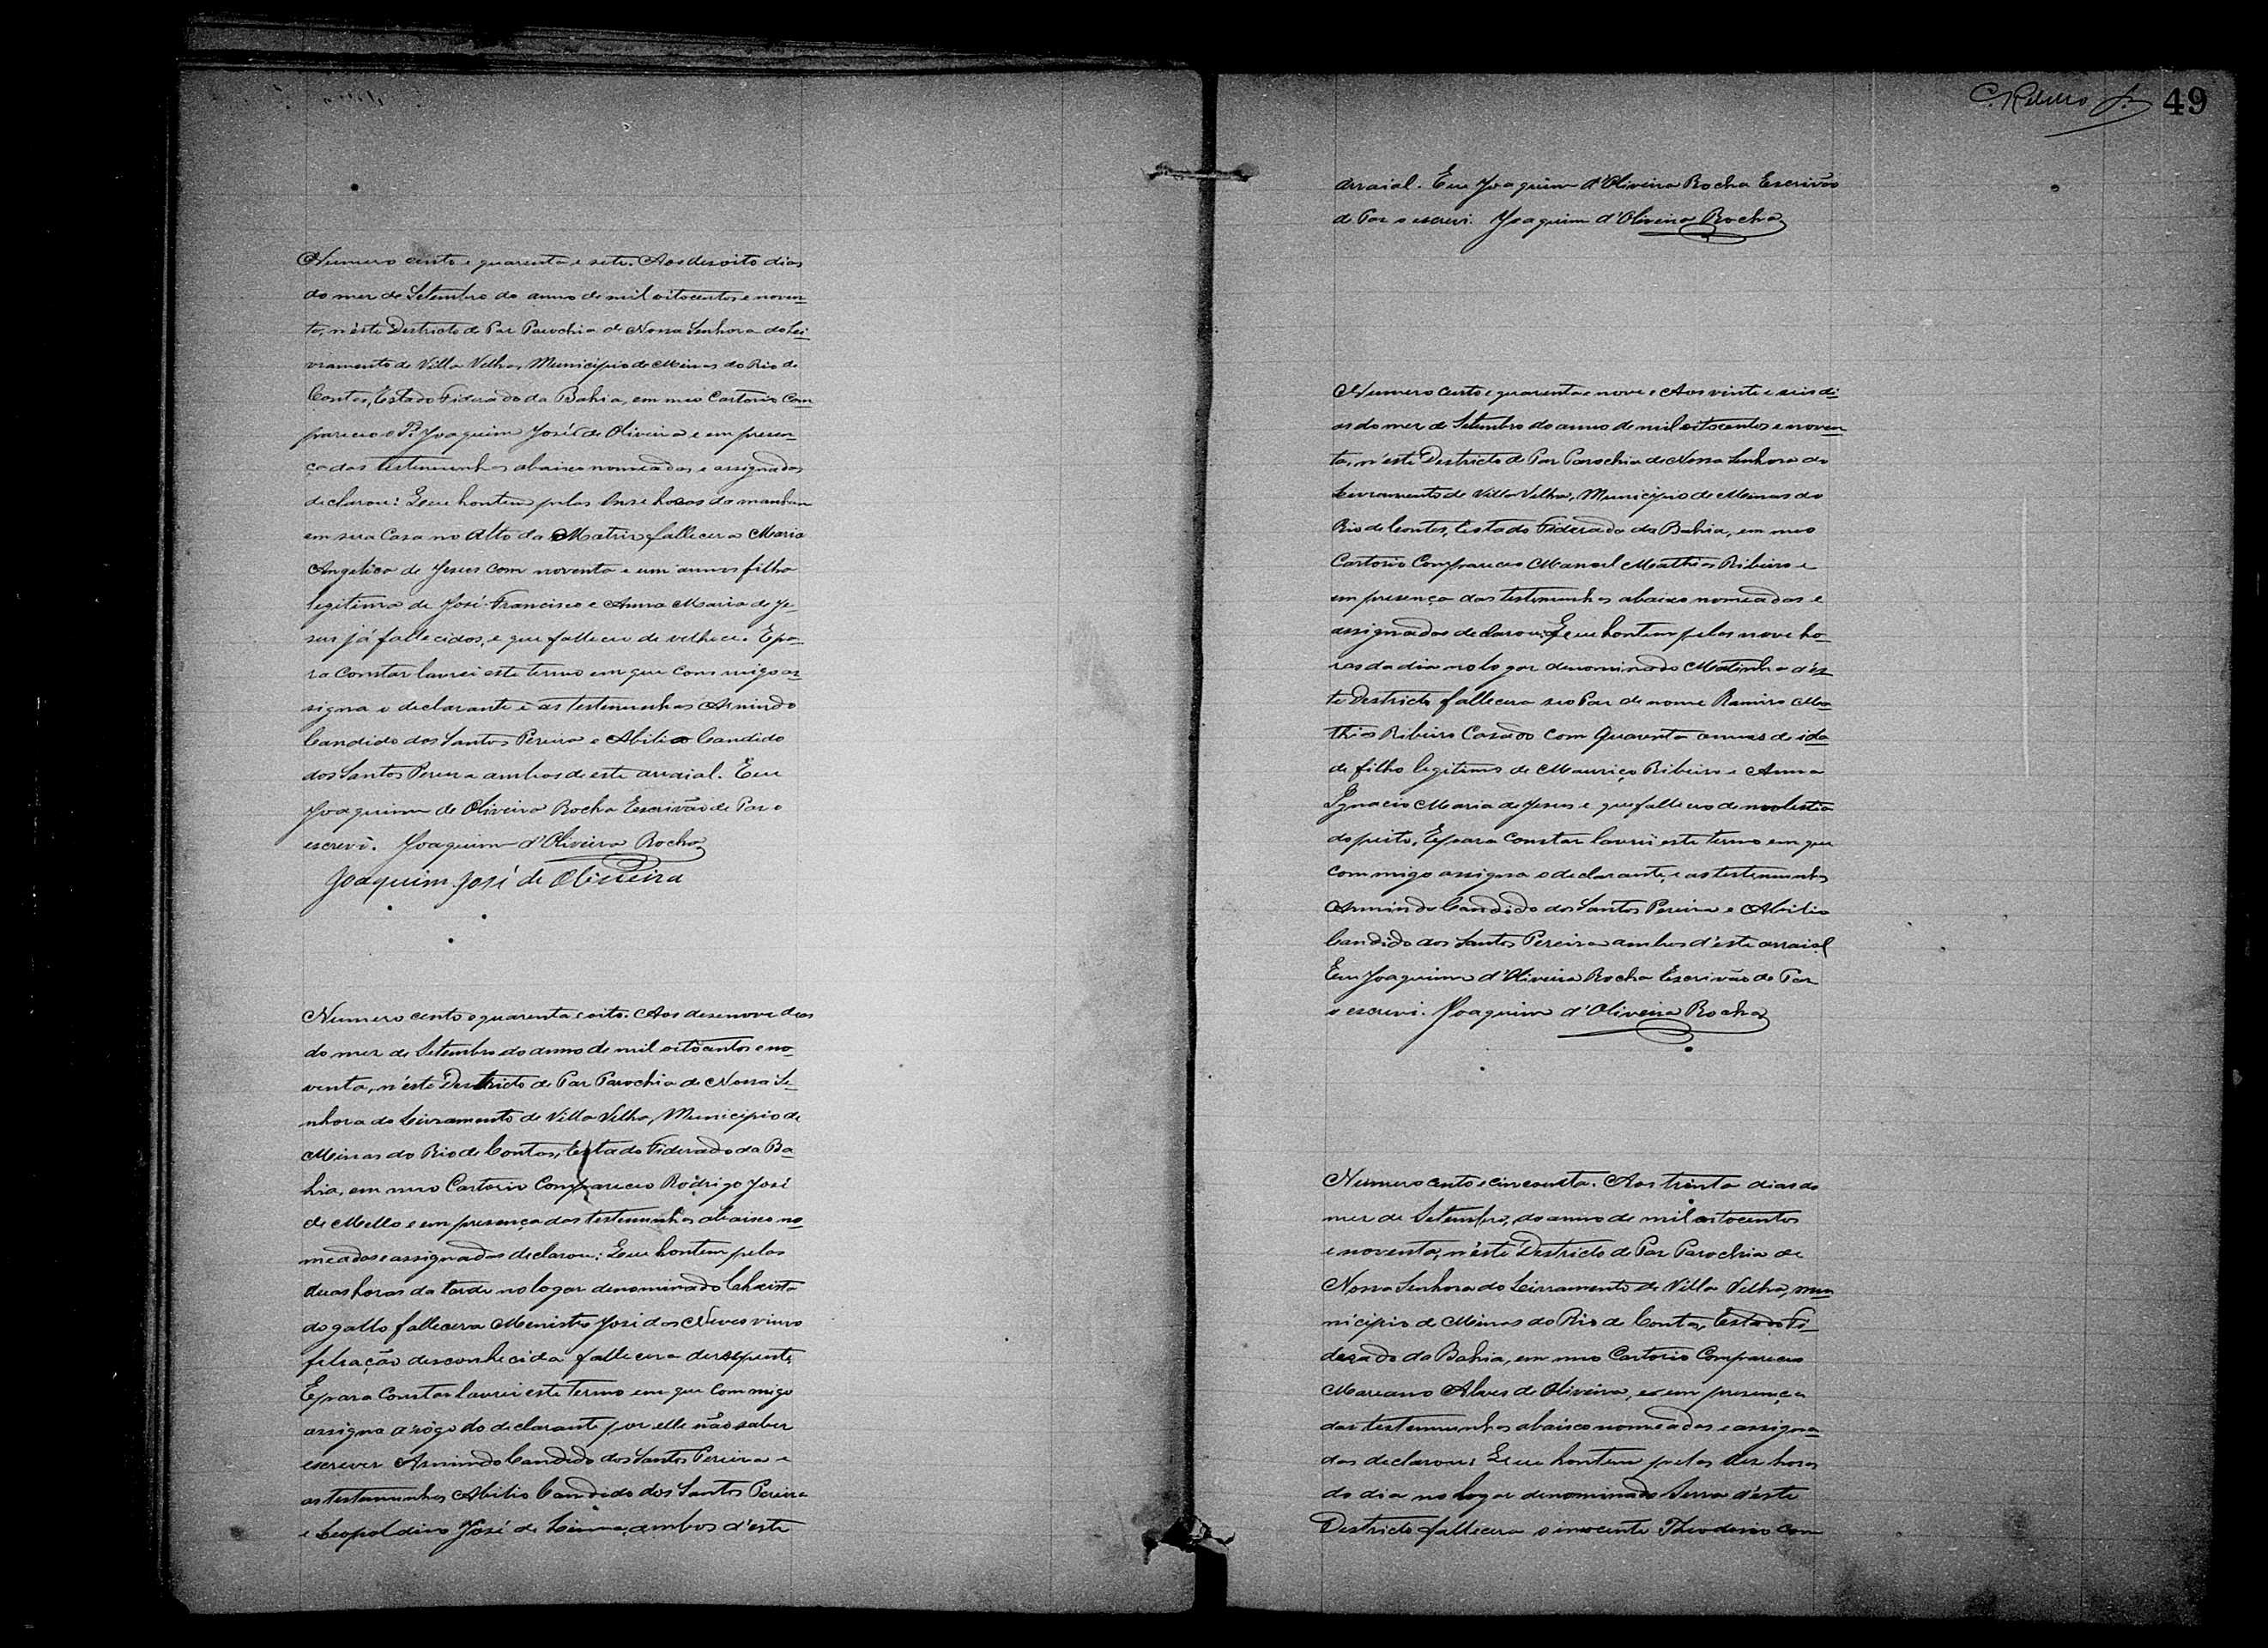 Numero cento e quarenta e sete. Aos desoito dias
do mez de Setembro do anno de mil oitocentos e noven-
ta, n'éste Destricto de Paz Parochia de Nossa Senhora do Li-
vramento de Villa Velha, Municipio de Minas do Rio de
Contas, Estado Fiderado da Bahia, em meo Cartorio Com
pareceo o Joaquim José de Oliveira e em presen-
ça das testemunhas abaixo nomeadas e assignadas
declarou: Que hontem pelas onse horas da manham
em sua Casa no Alto da Matriz fallecera Maria
Angelica de Jesus com noventa e um annos filha
legitima de José Francisco e Anna Maria de Je-
sus já fallecidos, e que falleceu de velhice. E pa-
ra Constar lavrei este termo em que com migo as-
signa o declarante e as testemunhas Armindo
Candido dos Santos Pereira e Abilio Candido
dos Santos Pereira ambos de este arraial. Eu
Joaquim de Oliveira Rocha Escrivão de Paz o
escrevi. Joaquim d'Oliveira Rocha
Joaquim José de Oliveira
Numero cento e quarenta e oito. Aos desenove dias
do mez de Setembro do anno de mil oitocentos e no-
venta, n'éste Destricto de Paz Parochia de Nossa Se-
nhora do Livramento de Villa Velha, Municipio de
Minas do Rio de Contas, Estado Fiderado da Ba-
hia, em meo Cartorio Compareceo Rodrigo José
de Mello e em presença das testemunhas abaixo no-
meadas e assignadas declarou: Que hontem pelas
duas horas da tarde no logar denominado
do gallo fallecera José das Neves viuvo
filiação desconhecida fallecera derepente.
E para Constar lavrei este termo em que com migo
assigna a rogo do declarante por elle não saber
escrever Armindo Candido dos Santos Pereira e
as testemunhas Abilio Candido dos Santos Pereira
e Leopoldino José de ambos d'este
C. Ribeiro 49
arraial. Eu Joaquim d'Oliveira Rocha Escrivão
de Paz o escrevi. Joaquim d'Oliveira Rocha
Numero cento e quarenta e nove. Aos vinte e seis di-
as do mez de Setembro do anno de mil oitocentos e noven-
ta, n'éste Destricto de Paz Parochia de Nossa Senhora do
Livramento de Villa Velha, Municipio de Minas do
Rio de Contas, Estado Fiderado da Bahia, em meo
Cartorio Compareceo Manoel Mathias Ribeiro e
em presença das testemunhas abaixo nomeadas e
assignadas declarou: Que hontem pelas nove ho-
ras da dia no logar denominado Matinha d'és-
te Destricto fallecera seo Pai de nome Ramiro Ma-
thias Ribeiro Casado com quarenta annos de ida-
de filho legitimo de Mauriço Ribeiro e Anna
Ignacio Maria de Jesus e que falleceo de molestia
do peito. E para Constar lavrei este termo em que
com migo assigna o declarante, e as testemunhas
Armindo Candido dos Santos Pereira e Abilio
Candido dos Santos Pereira ambos d'éste arraial
Eu Joaquim d'Oliveira Rocha Escrivão de Paz
o escrevi. Joaquim d'Oliveira Rocha
Numero cento e cincoenta. Aos trinta dias do
mez de Setembro, do anno de mil oitocentos
e noventa, n'éste Destricto de Paz Parochia de
Nossa Senhora do Livramento de Villa Velha, mu-
nicipio de Minas do Rio de Contas, Estado Fi-
derado da Bahia, em meo Cartorio Compareceo
Mareano Alves de Oliveira, e em presença
das testemunhas abaixo nomeadas e assigna-
das declarou: Que hontem pelas dez horas
do dia no logar denominado Serra d'éste
Destricto fallecera o inocente Theodorio com